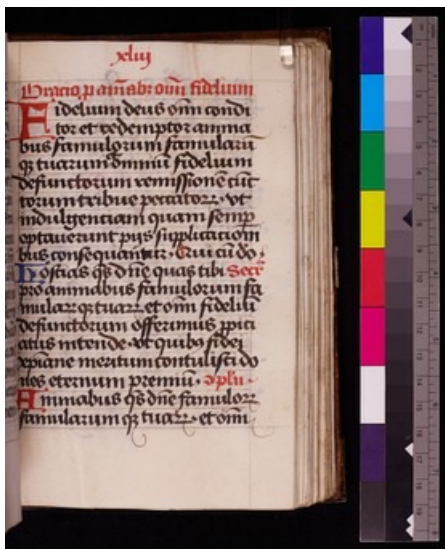 xliij
Oracio p aīabꝫ oīm fidelium
Fidelium deus oīm condi
tor et redemptor anima
bus famulorum famularū
qꝫ tuarum omniū fidelium
defunctorum remissionē cūc
torum tribue peccatoꝝ. Vt
indulgenciam quam semp
optauerunt pijs supplicacioni
bus consequantur. Qui cū do.
Hostias qs dn̄e quas tibi Secr̄
pro animabus famulorum fa
mulaꝝ qꝫ tuaꝝ et oīm fideliū
defunctorum offerimus ꝓpici
atus intende. vt quibꝰ fidei
xpiane meritum contulisti do
nes eternum premiū. 
Animabus qs dn̄e famuloꝝ
famularum qꝫ tuaꝝ. et oīm